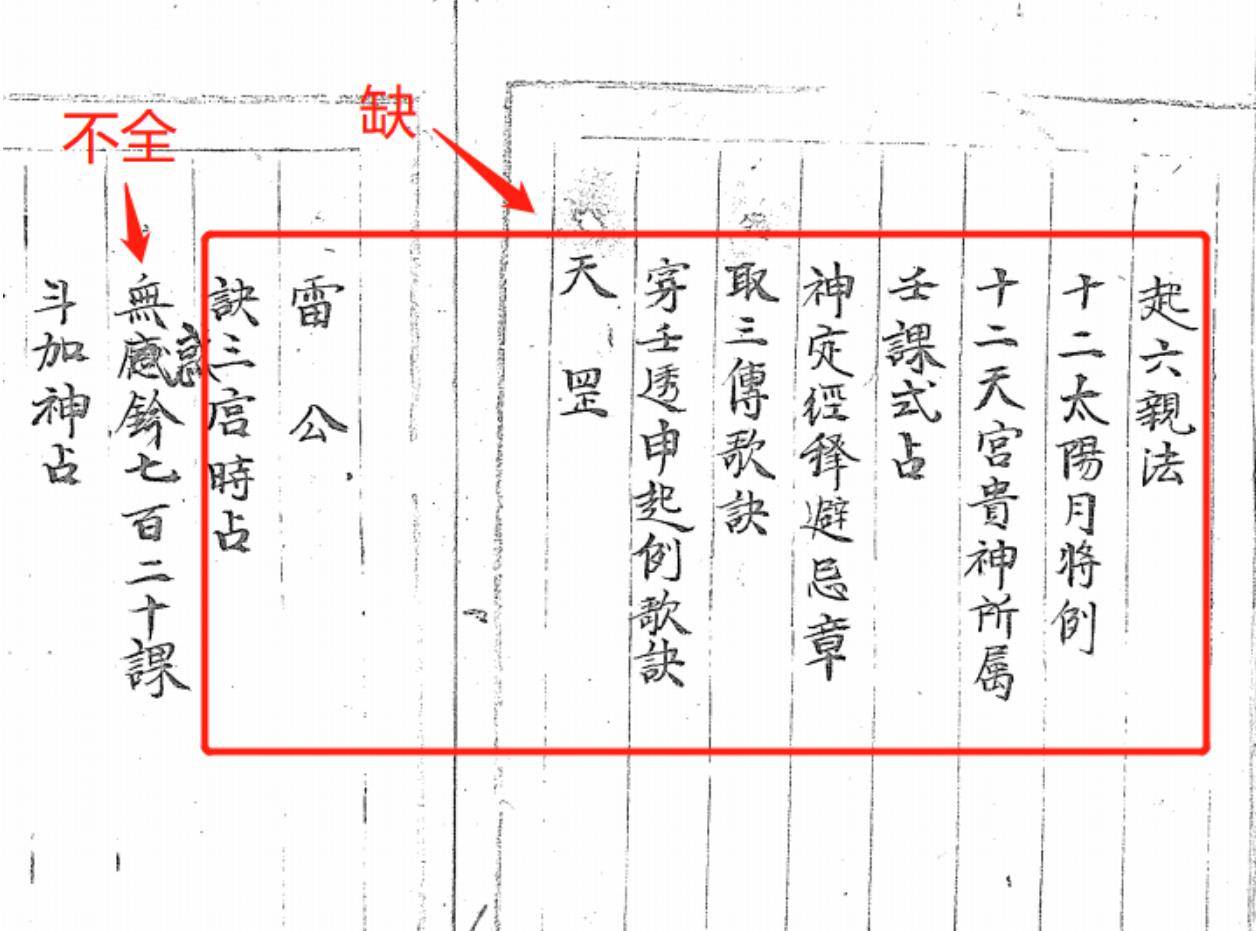 不全
缺
起六親法
十二太陽月將例
十二天宮貴神所属
壬課式占
神定經释避忌章
取三傳歌訣
穿壬透申起例歌訣
天罡
雷公
訣三宫時占
無感鈐七百二十課
惑
斗加神占